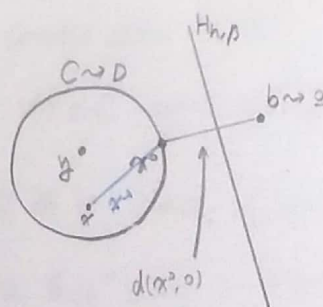 H_{h,β}
C ⇝ D
b ⇝ 0
y
x⁰
x
d(x⁰, 0)